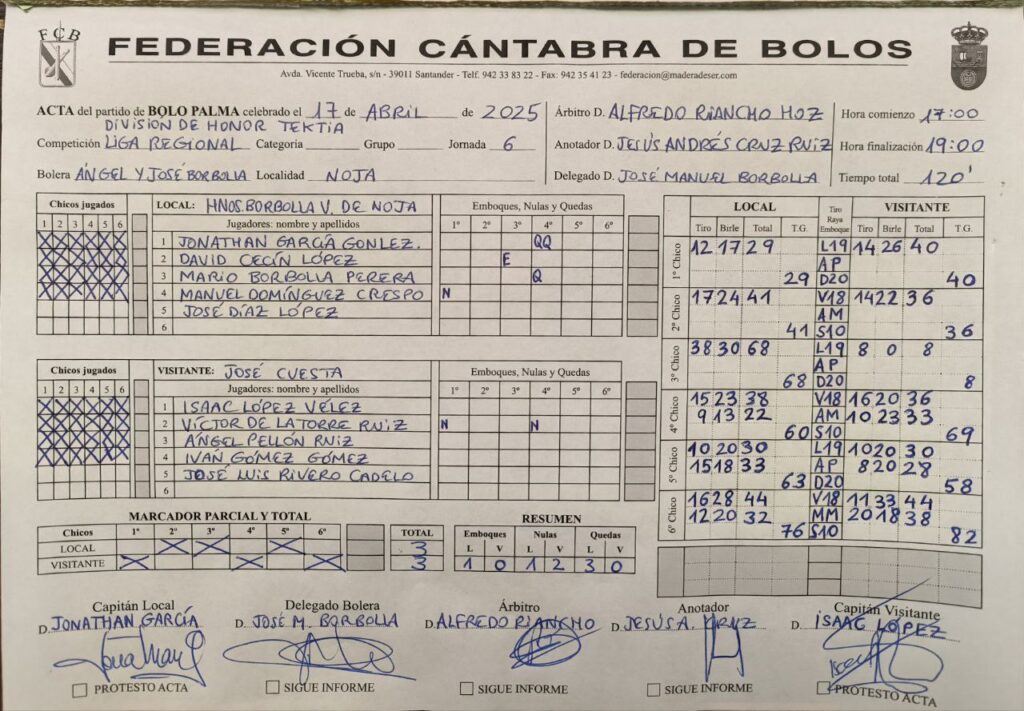 FCB
FEDERACIÓN CÁNTABRA DE BOLOS
Avda. Vicente Trueba, s/n - 39011 Santander - Telf. 942 33 83 22 - Fax: 942 35 41 23 - federacion@maderadeser.com
ACTA del partido de BOLO PALMA celebrado el 17 de ABRIL de 2025
DIVISION DE HONOR TEKTIA
Competición LIGA REGIONAL Categoría Grupo Jornada 6
Bolera ÁNGEL Y JOSÉ BORBOLLA Localidad NOJA
Árbitro D. ALFREDO RIANCHO HOZ
Anotador D. JESÚS ANDRÉS CRUZ RUIZ
Delegado D. JOSÉ MANUEL BORBOLLA
Hora comienzo 17:00
Hora finalización 19:00
Tiempo total 120'
Chicos jugados LOCAL: HNOS. BORBOLLA V. DE NOJA Emboques, Nulas y Quedas
1 2 3 4 5 6 Jugadores: nombre y apellidos 1º 2º 3º 4º 5º 6º
1 JONATHAN GARCÍA GONLEZ. QQ
2 DAVID CECÍN LÓPEZ E
3 MARIO BORBOLLA PERERA Q
4 MANUEL DOMÍNGUEZ CRESPO N
5 JOSÉ DÍAZ LÓPEZ
6
Chicos jugados VISITANTE: JOSÉ CUESTA Emboques, Nulas y Quedas
1 2 3 4 5 6 Jugadores: nombre y apellidos 1º 2º 3º 4º 5º 6º
1 ISAAC LÓPEZ VÉLEZ
2 VÍCTOR DE LA TORRE RUIZ N N
3 ÁNGEL PELLÓN RUIZ
4 IVÁN GÓMEZ GÓMEZ
5 JOSÉ LUIS RIVERO CADELO
6
LOCAL Tiro Raya Emboque VISITANTE
Tiro Birle Total T.G. Tiro Birle Total T.G.
1º Chico 12 17 29 L19 14 26 40
AP
29 D20 40
2º Chico 17 24 41 V18 14 22 36
AM
41 S10 36
3º Chico 38 30 68 L19 8 0 8
AP
68 D20 8
4º Chico 15 23 38 V18 16 20 36
9 13 22 AM 10 23 33
60 S10 69
5º Chico 10 20 30 L19 10 20 30
15 18 33 AP 8 20 28
63 D20 58
6º Chico 16 28 44 V18 11 33 44
12 20 32 MM 20 18 38
76 S10 82
MARCADOR PARCIAL Y TOTAL
Chicos 1º 2º 3º 4º 5º 6º TOTAL
LOCAL X X X 3
VISITANTE X X X 3
RESUMEN
Emboques Nulas Quedas
L V L V L V
1 0 1 2 3 0
Capitán Local Delegado Bolera Árbitro Anotador Capitán Visitante
D. JONATHAN GARCÍA D. JOSÉ M. BORBOLLA D. ALFREDO RIANCHO D. JESÚS A. CRUZ D. ISAAC LÓPEZ
PROTESTO ACTA SIGUE INFORME SIGUE INFORME SIGUE INFORME PROTESTO ACTA